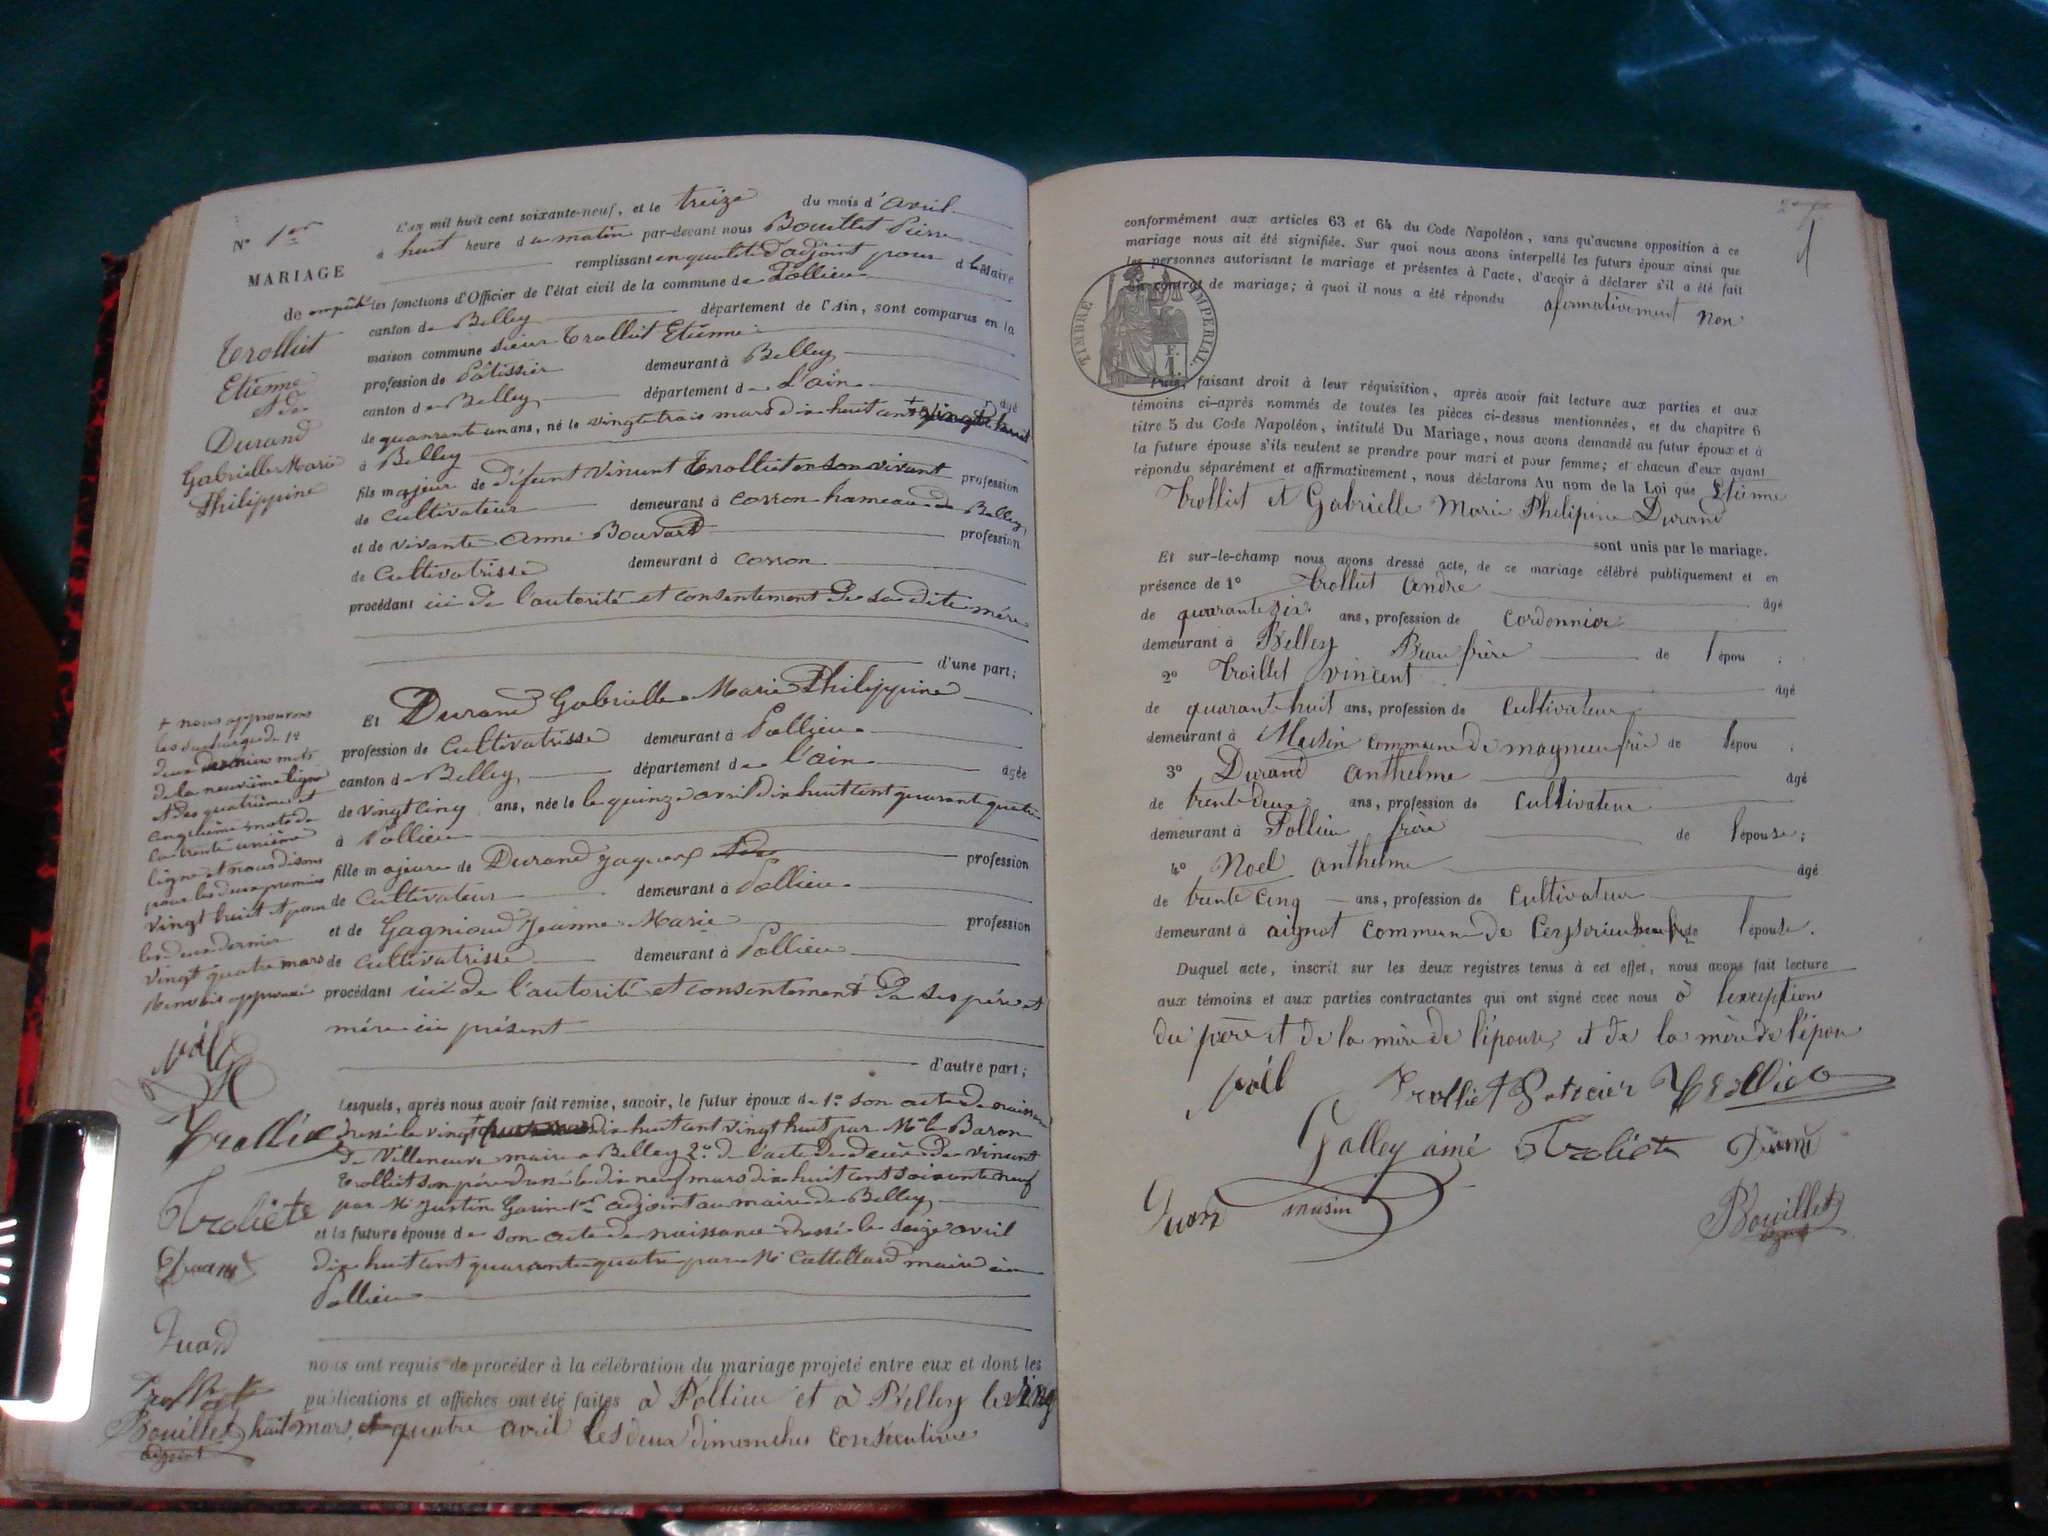 N° 1er
MARIAGE
de
Trolliet
Etienne
et de
Durand
Gabrielle Marie
Philippine
L'an mil huit cent soixante-neuf, et le treize du mois d'avril
à huit heure du matin par-devant nous Bouillet Pierre
remplissant en qualité d'adjoint pour le Maire
empêché les fonctions d'Officier de l'état civil de la commune de Pollieu
canton de Belley département de l'Ain, sont comparus en la
maison commune sieur Trolliet Etienne
profession de Patissier demeurant à Belley
canton de Belley département de L'ain âgé
de quanrante un ans, né le vingt trois mars dix huit cent + vingt huit
à Belley
fils majeur de défunt Vincent Trolliet en son vivant profession
de Cultivateur demeurant à Coron hameau de Belley
et de vivante Anne Bouvard profession
de Cultivatrisse demeurant à Coron
procédant ici de l'autorité et consentement de sa dite mère
d'une part;
Et Durand Gabrielle Marie Philippine
profession de Cultivatrisse demeurant à Pollieu
canton de Belley département de l'ain âgée
de vingt cinq ans, née le le quinze avril dix huit cent quarante quatre
à Pollieu
fille majeure de Durand Jaques profession
de Cultivateur demeurant à Pollieu
et de Gagnioud Jeanne Marie profession
de Cultivatrisse demeurant à Pollieu
procédant ici de l'autorité et consentement de ses père et
mère ici présent
d'autre part;
+ nous approuvons
les surcharges de 1°
deux dernier mots
de la neuvième ligne
et des quatrième et
cinquième mots de
la trente unième
ligne et nous disons
pour les deux premier
vingt huit et pour
les deux dernier
vingt quatre mars
Renvois approuvé
Noël
Trolliet
Troliete
Durand
Juand
Bouillet
adjoint
Lesquels, après nous avoir fait remise, savoir, le futur époux de 1° son acte de naissance
dressé le vingt + dix huit cent vingt huit par Mr le Baron
de Villeneuve maire à Belley 2° de l'acte de décès de Vincent
Trolliet son père dressé le dix neuf mars dix huit cent soixante neuf
par Mr Justin Garin 1er adjoint au maire de Belley
et la future épouse de son acte de naissance dressé le seize avril
dix huit cent quarante quatre par Mr Cattelard maire à
Pollieu
nous ont requis de procéder à la célébration du mariage projeté entre eux et dont les
publications et affiches ont été faites à Pollieu et à Belley le ving
huit mars, et quatre avril les deux dimanches consécutives
1
conformément aux articles 63 et 64 du Code Napoléon, sans qu'aucune opposition à ce
mariage nous ait été signifiée. Sur quoi nous avons interpellé les futurs époux ainsi que
les personnes autorisant le mariage et présentes à l'acte, d'avoir à déclarer s'il a été fait
un contrat de mariage; à quoi il nous a été répondu afirmativement non
TIMBRE IMPÉRIAL
Puis, faisant droit à leur réquisition, après avoir fait lecture aux parties et aux
témoins ci-après nommés de toutes les pièces ci-dessus mentionnées, et du chapitre 6
titre 5 du Code Napoléon, intitulé Du Mariage, nous avons demandé au futur époux et à
la future épouse s'ils veulent se prendre pour mari et pour femme; et chacun d'eux ayant
répondu séparément et affirmativement, nous déclarons Au nom de la Loi que Etienne
Trolliet et Gabrielle Marie Philipine Durand
sont unis par le mariage.
Et sur-le-champ nous avons dressé acte, de ce mariage célébré publiquement et en
présence de 1° Trolliet André âgé
de quarante six ans, profession de Cordonnier
demeurant à Belley Beau frère de l'épou ;
2° Trolliet Vincent âgé
de quarante huit ans, profession de Cultivateur
demeurant à Musin commune de magneu frère de l'épou ;
3° Durand Anthelme âgé
de trente deux ans, profession de Cultivateur
demeurant à Pollieu frère de l'épouse;
4° Noel Anthelme âgé
de trente cinq ans, profession de Cultivateur
demeurant à aignot Commune de Ceyserieu beau fr de l'épouse.
Duquel acte, inscrit sur les deux registres tenus à cet effet, nous avons fait lecture
aux témoins et aux parties contractantes qui ont signé avec nous à l'exception
du père et de la mère de l'épouse, et de la mère de l'épou
Noël Trolliet Paticier Trolliet
Galley aimé Troliete Durand
Juand musin Bouillet
adjoint